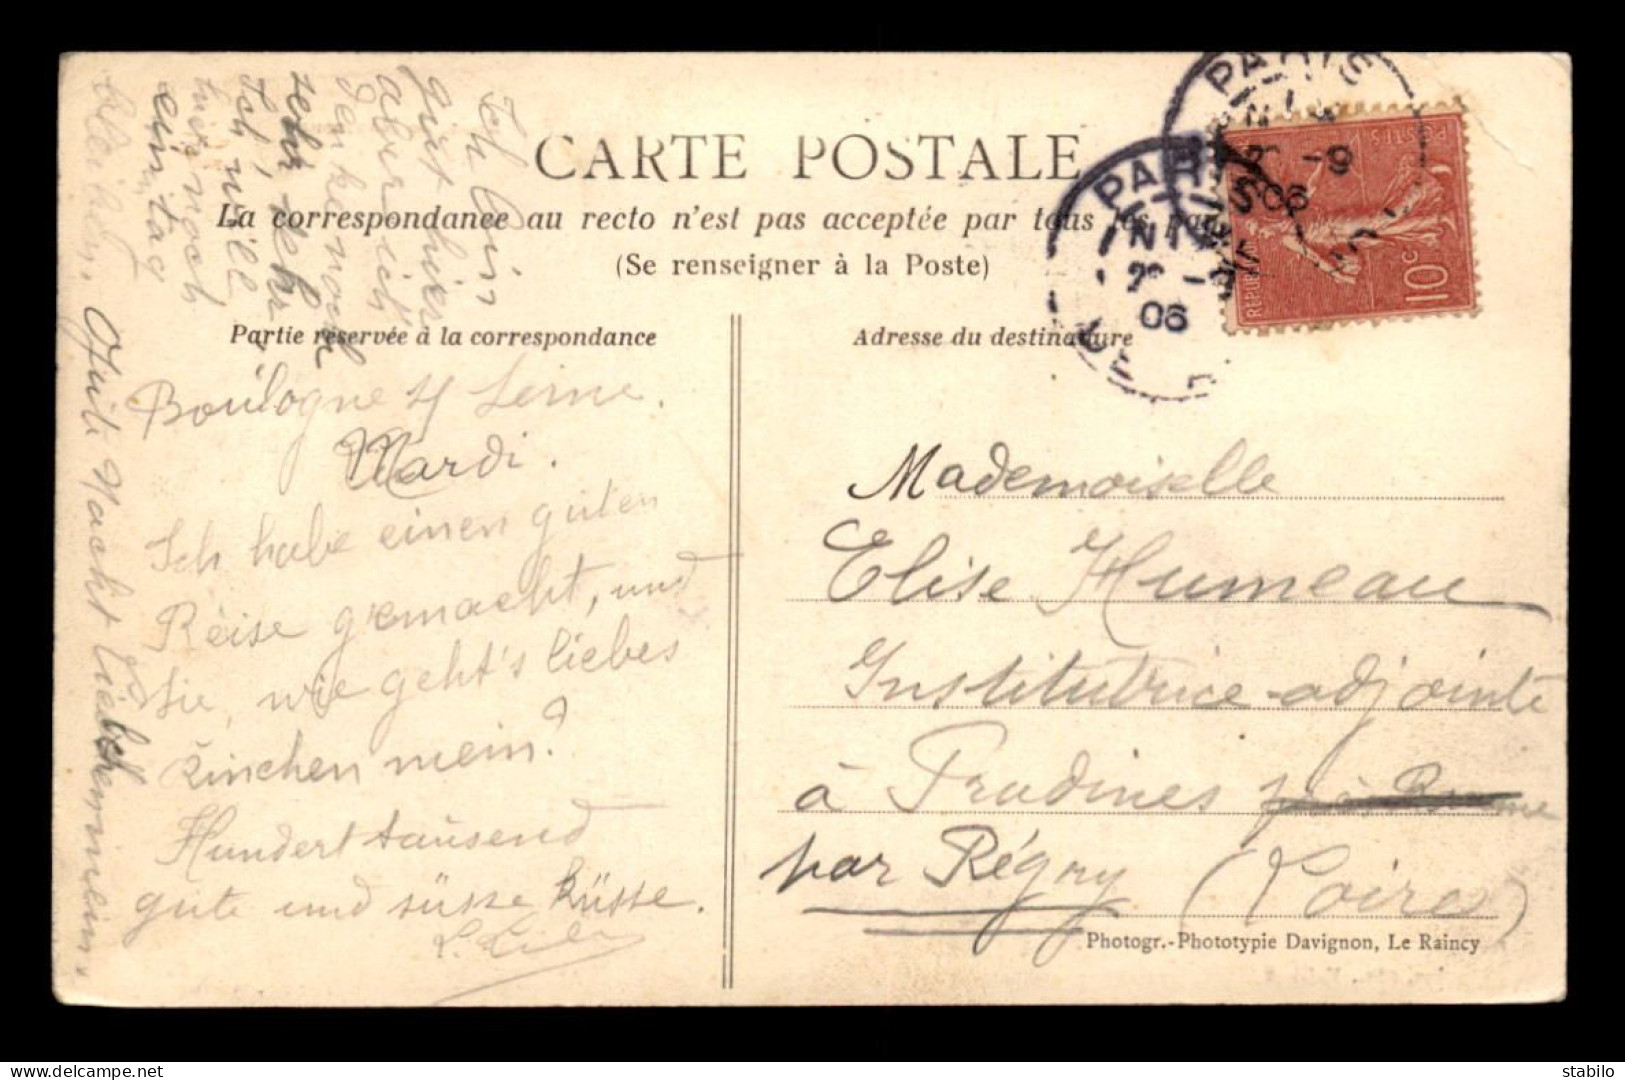 CARTE POSTALE
La correspondance au recto n'est pas acceptée par tous les pays
(Se renseigner à la Poste)
Partie réservée à la correspondance
Adresse du destinataire
PARIS
-9
06
PARIS
06
POSTES
REPUBLIQUE
10c
Ich bin
gut hier
aber ich
denke noch
sehr
Ich will
hier noch
ein tag
bleiben. Gute Nacht liebchen mein.
Boulogne s/ Seine.
Mardi.
Ich habe einen guten
Reise gemacht, und
Sie, wie geht's liebes
Kinchen mein?
Hundert tausend
gute und süsse Küsse.
Mademoiselle
Elise Humeau
Institutrice-adjointe
à Pradines
par Régny (Loire)
Photogr.-Phototypie Davignon, Le Raincy
delcampe.net
stabilo